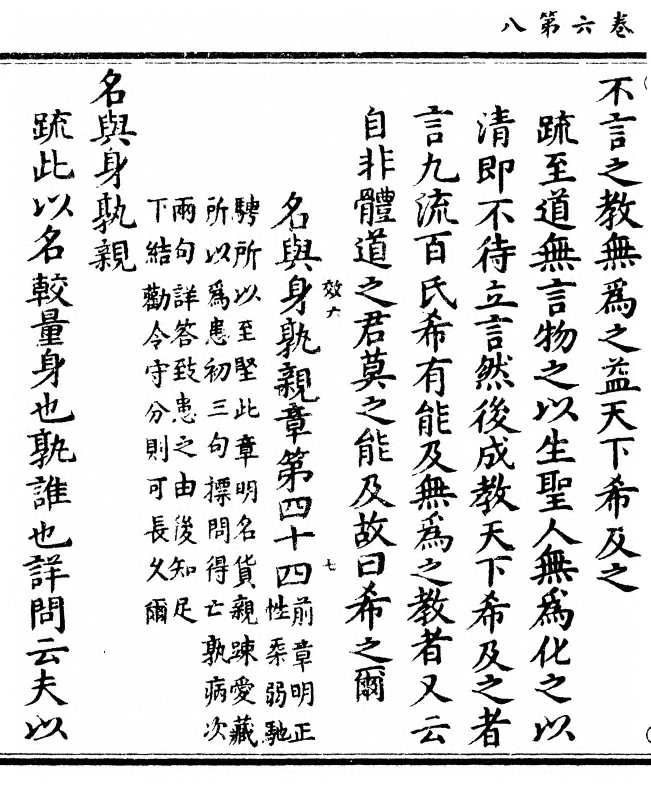 卷六第八
不言之教無爲之益天下希及之
疏至道無言物之以生聖人無爲化之以
清即不待立言然後成教天下希及之者
言九流百氏希有能及無爲之教者又云
自非體道之君莫之能及故曰希之爾
效六
七
名與身孰親章第四十四
前章明正
性柔弱馳
騁所以至堅此章明名貨親踈愛藏
所以爲患初三句摽問得亡孰病次
兩句詳答致患之由後知足
下結勸令守分則可長久爾
名與身孰親
疏此以名較量身也孰誰也詳問云夫以